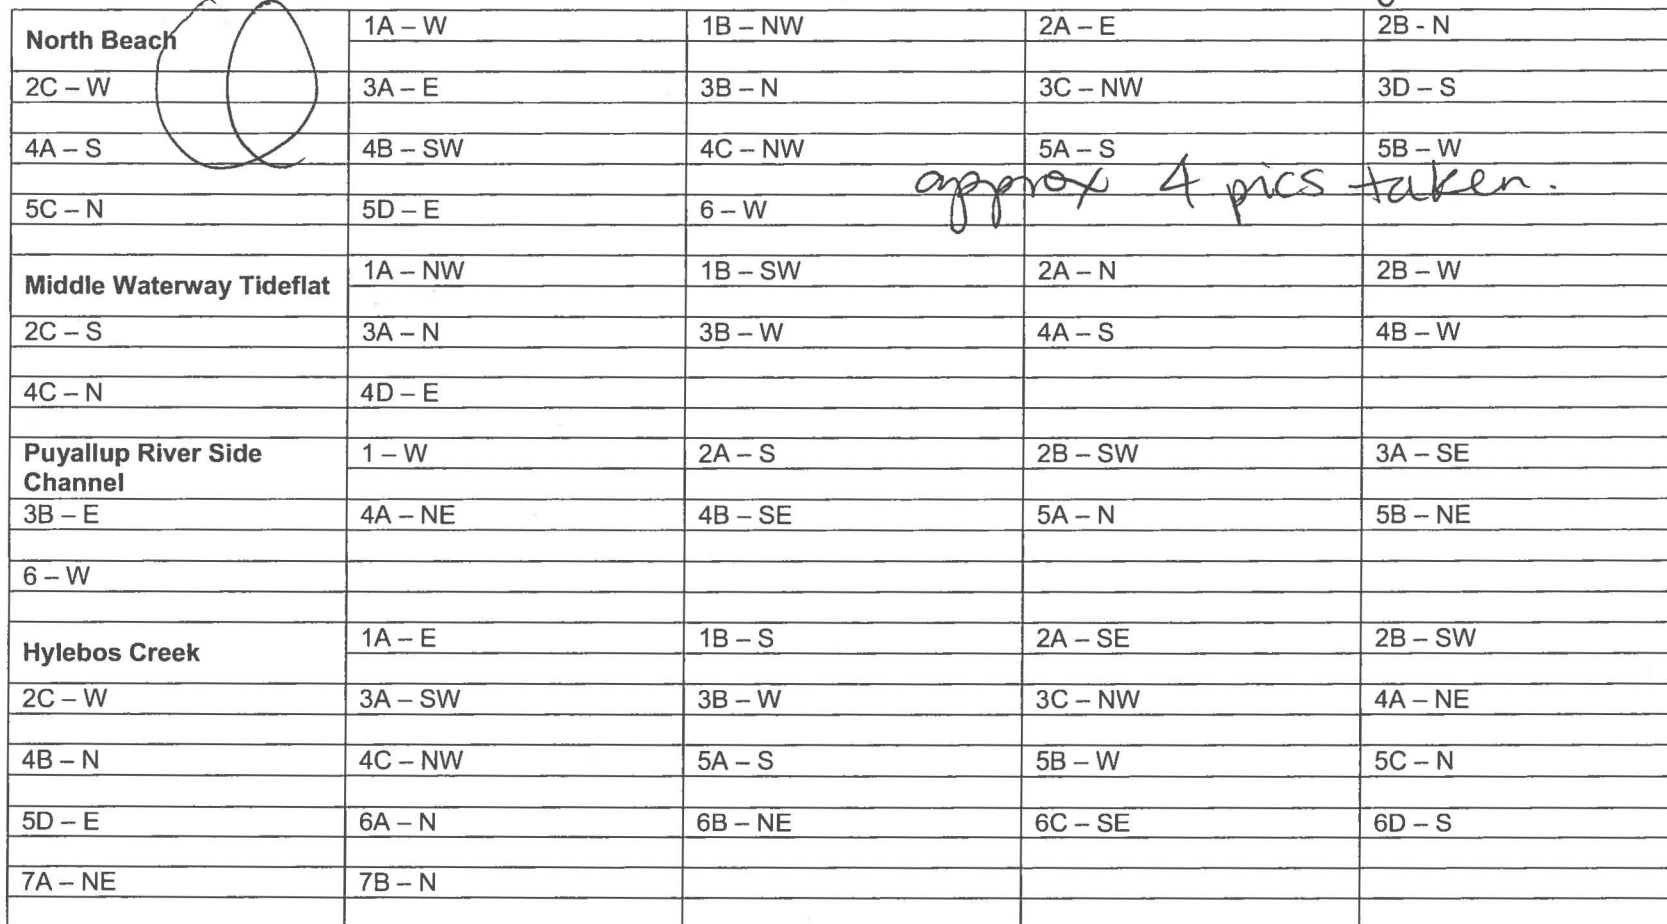 North Beach 1A – W 1B – NW 2A – E 2B - N
2C – W 3A – E 3B – N 3C – NW 3D – S
4A – S 4B – SW 4C – NW 5A – S 5B – W
approx 4 pics taken.
5C – N 5D – E 6 – W
Middle Waterway Tideflat 1A – NW 1B – SW 2A – N 2B – W
2C – S 3A – N 3B – W 4A – S 4B – W
4C – N 4D – E
Puyallup River Side 1 – W 2A – S 2B – SW 3A – SE
Channel
3B – E 4A – NE 4B – SE 5A – N 5B – NE
6 – W
Hylebos Creek 1A – E 1B – S 2A – SE 2B – SW
2C – W 3A – SW 3B – W 3C – NW 4A – NE
4B – N 4C – NW 5A – S 5B – W 5C – N
5D – E 6A – N 6B – NE 6C – SE 6D – S
7A – NE 7B – N